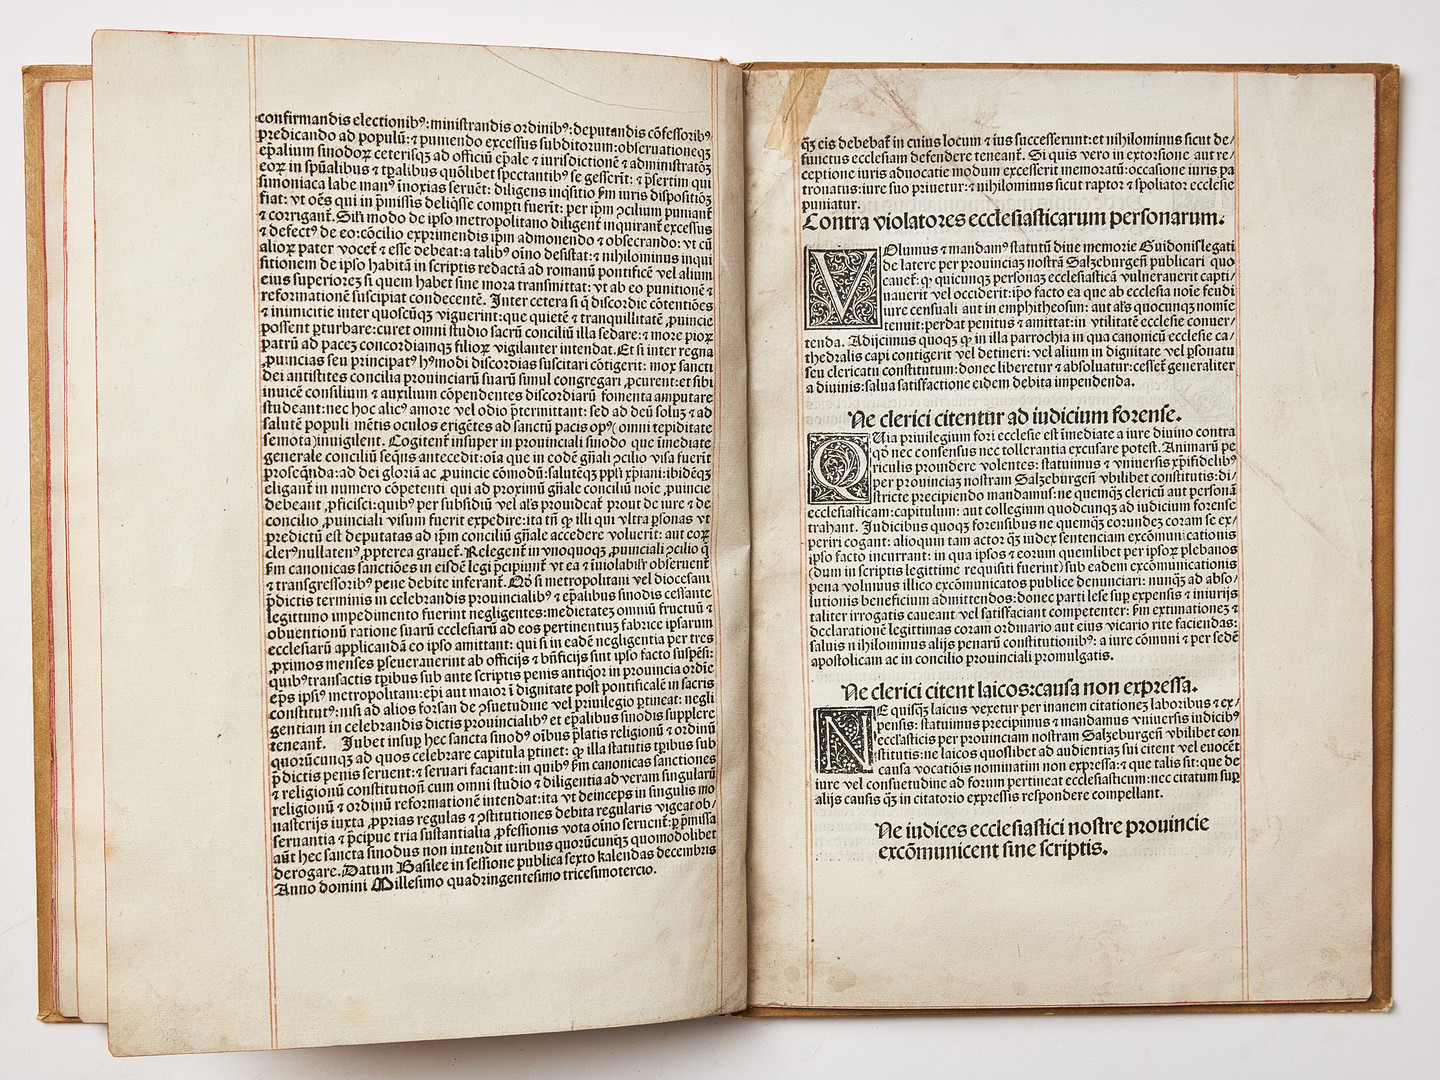 confirmandis electionibꝰ: ministrandis ordinibꝰ: deputandis cōfessoribꝰ
predicando ad populū: ⁊ puniendo excessus subditorum: obseruationeqꝫ
ep̄alium sinodoꝝ ceterisqꝫ ad officiū ep̄ale ⁊ iurisdictionē ⁊ administratōꝫ
eoꝝ in sp̄ualibus ⁊ tp̄alibus quōlibet spectantibꝰ se gesserīt: ⁊ p̄sertim qui
simoniaca labe manꝰ īnoxias seruēt: diligens inqͥsitio ẜm iuris dispositiōꝫ
fiat: vt oēs qui in p̄missis deliq̄sse compti fuerīt: per ip̄m ꝯcilium puniant᷑
⁊ corrigant᷑. Sil̄i modo de ipso metropolitano diligent᷑ inquirant᷑ excessus
⁊ defectꝰ de eo: cōcilio exprimendis ip̄m admonendo ⁊ obsecrando: vt cū
alioꝝ pater vocet᷑ ⁊ esse debeat: a talibꝰ oīno desistat: ⁊ nihilominus inqui
sitionem de ipso habitā in scriptis redactā ad romanū pontificē vel alium
eius superioreꝫ si quem habet sine mora transmittat: vt ab eo punitionē ⁊
reformationē suscipiat condecentē. Inter cetera si q̄ discordie cōtentiōes
⁊ inimicitie inter quoscūqꝫ viguerint: que quietē ⁊ tranquillitatē ꝓuincie
possent ꝑturbare: curet omni studio sacrū conciliū illa sedare: ⁊ more pioꝝ
patrū ad paceꝫ concordiamqꝫ filioꝝ vigilanter intendat. Et si inter regna
ꝓuincias seu principatꝰ hꝰmodi discordias suscitari cōtigerit: mox sancti
dei antistites concilia prouinciarū suarū simul congregari ꝓcurent: et sibi
inuicē consilium ⁊ auxilium cōpendentes discordiarū fomenta amputare
studeant: nec hoc alicꝰ amore vel odio p̄termittant: sed ad deū soluꝫ ⁊ ad
salutē populi mētis oculos erigētes ad sanctū pacis opꝰ (omni tepiditate
semota) inuigilent. Cogitent᷑ insuper in prouinciali sinodo que īmediate
generale conciliū seq̄ns antecedit: oīa que in eodē gn̄ali ꝯcilio visa fuerīt
proseqn̄da: ad dei gloriā ac ꝓuincie cōmodū: salutēqꝫ ppl̄i xp̄iani: ibidēqꝫ
eligant᷑ in numero cōpetenti qui ad proximū gn̄ale conciliū noīe ꝓuincie
debeant ꝓficisci: quibꝰ per subsidiū vel al̄s prouideat᷑ prout de iure ⁊ de
concilio ꝓuinciali visum fuerit expedire: ita tn̄ ꝙ illi qui vltra ꝑsonas vt
predictū est deputatas ad ip̄m conciliū gn̄ale accedere voluerīt: aut eoꝝ
clerꝰ nullatenꝰ ꝓpterea grauet᷑. Relegent᷑ in vnoquoqꝫ ꝓuinciali ꝯcilio q̄
ẜm canonicas sanctiōes in eisdē legi p̄cipiunt᷑ vt ea ⁊ īuiolabilr̄ obseruent᷑
⁊ transgressoribꝰ pene debite inferant᷑. Qō si metropolitani vel diocesani
p̄dictis terminis in celebrandis prouincialibꝰ ⁊ ep̄alibus sinodis cessante
legittimo impedimento fuerint negligentes: medietateꝫ omniū fructuū ⁊
obuentionū ratione suarū ecclesiarū ad eos pertinentiuꝫ fabrice ipsarum
ecclesiarū applicandā eo ipso amittant: qui si in eadē negligentia per tres
ꝓximos menses ꝑseuerauerint ab officijs ⁊ bn̄ficijs sint ipso facto suspēsi:
quibꝰ transactis tp̄ibus sub ante scriptis penis antiqͥor in prouincia ordīe
ep̄s ipsiꝰ metropolitani: ep̄i aut maior ī dignitate post pontificalē in sacris
constitutꝰ: nisi ad alios forsan de ꝯsuetudine vel priuilegio ꝑtineat: negli
gentiam in celebrandis dictis prouincialibꝰ et ep̄alibus sinodis supplere
teneant᷑. Iubet insuꝑ hec sancta sinodꝰ oībus p̄latis religionū ⁊ ordinū
quorūcunqꝫ ad quos celebrare capitula ꝑtinet: ꝙ illa statutis tp̄ibus sub
p̄dictis penis seruent: ⁊ seruari faciant: in quibꝰ ẜm canonicas sanctiones
⁊ religionū constitutiōn̄ cum omni studio ⁊ diligentia ad veram singularū
religionū ⁊ ordinū reformationē intendat: ita vt deinceps in singulis mo
nasterijs iuxta ꝓprias regulas ⁊ ꝯstitutiones debita regularis vigeat ob/
seruantia ⁊ p̄cipue tria sustantialia ꝓfessionis vota oīno seruent᷑: ꝑ p̄missa
aūt hec sancta sinodus non intendit iuribus quorūcunqꝫ quomodolibet
derogare. Datum Basilee in sessione publica sexto kalendas decembris
Anno domini Millesimo quadringentesimo tricesimotercio.
qꝫ eis debebat᷑ in cuius locum ⁊ ius successerunt: et nihilominus sicut de/
functus ecclesiam defendere teneant᷑. Si quis vero in extorsione aut re/
ceptione iuris aduocatie modum excesserit memoratū: occasione iuris pa
tronatus: iure suo priuetur: ⁊ nihilominus sicut raptor ⁊ spoliator ecclesie
puniatur.
Contra violatores ecclesiasticarum personarum.
VOlumus ⁊ mandamꝰ statutū diue memorie Guidonis legati
de latere per prouinciaꝫ nostrā Salꝫeburgeñ publicari quo
cauet᷑: ꝙ quicunqꝫ personaꝫ ecclesiasticā vulnerauerit capti/
uauerit vel occiderit: ip̄o facto ea que ab ecclesia noīe feudi
iure censuali aut in emphitheosim: aut al̄s quocunqꝫ nomīe
tenuit: perdat penitus ⁊ amittat: in vtilitatē ecclesie conuer/
tenda. Adijcimus quoqꝫ ꝙ in illa parrochia in qua canonicū ecclesie ca/
thedralis capi contigerit vel detineri: vel alium in dignitate vel ꝑsonatu
seu clericatu constitutum: donec liberetur ⁊ absoluatur: cesset᷑ generaliter
a diuinis: salua satisfactione eidem debita impendenda.
Ne clerici citentur ad iudicium forense.
QUia priuilegium fori ecclesie est īmediate a iure diuino contra
qō nec consensus nec tollerantia excusare potest. Animarū pe
riculis prouidere volentes: statuimus ⁊ vniuersis xp̄ifidelibꝰ
per prouinciaꝫ nostram Salꝫeburgeñ vbilibet constitutis: di/
stricte precipiendo mandamus: ne quemqꝫ clericū aut personā
ecclesiasticam: capitulum: aut collegium quodcunqꝫ ad iudicium forense
trahant. Iudicibus quoqꝫ forensibus ne quemqꝫ eorundeꝫ coram se ex/
periri cogant: alioquin tam actor qꝫ iudex sentenciam excōmunicationis
ipso facto incurrant: in qua ipsos ⁊ eorum quemlibet per ipsoꝝ plebanos
(dum in scriptis legittime requisiti fuerint) sub eadem excōmunicationis
pena volumus illico excōmunicatos publice denunciari: nunqꝫ ad abso/
lutionis beneficium admittendos: donec parti lese suꝑ expensis ⁊ iniurijs
taliter irrogatis caueant vel satisfaciant competenter: ẜm extimationeꝫ ⁊
declarationē legittimas coram ordinario aut eius vicario rite faciendas:
saluis nihilominus alijs penarū constitutionibꝰ: a iure cōmuni ⁊ per sedē
apostolicam ac in concilio prouinciali promulgatis.
Ne clerici citent laicos: causa non expressa.
NE quisqꝫ laicus vexetur per inanem citationeꝫ laboribus ⁊ ex/
pensis: statuimus precipimus ⁊ mandamus vniuersis iudicibꝰ
eccl̄asticis per prouinciam nostram Salꝫeburgeñ vbilibet con
stitutis: ne laicos quoslibet ad audientiaꝫ sui citent vel euocēt
causa vocatiōis nominatim non expressa: ⁊ que talis sit: que de
iure vel consuetudine ad forum pertineat ecclesiasticum: nec citatum suꝑ
alijs causis qꝫ in citatorio expressis respondere compellant.
Ne iudices ecclesiastici nostre prouincie
excōmunicent sine scriptis.